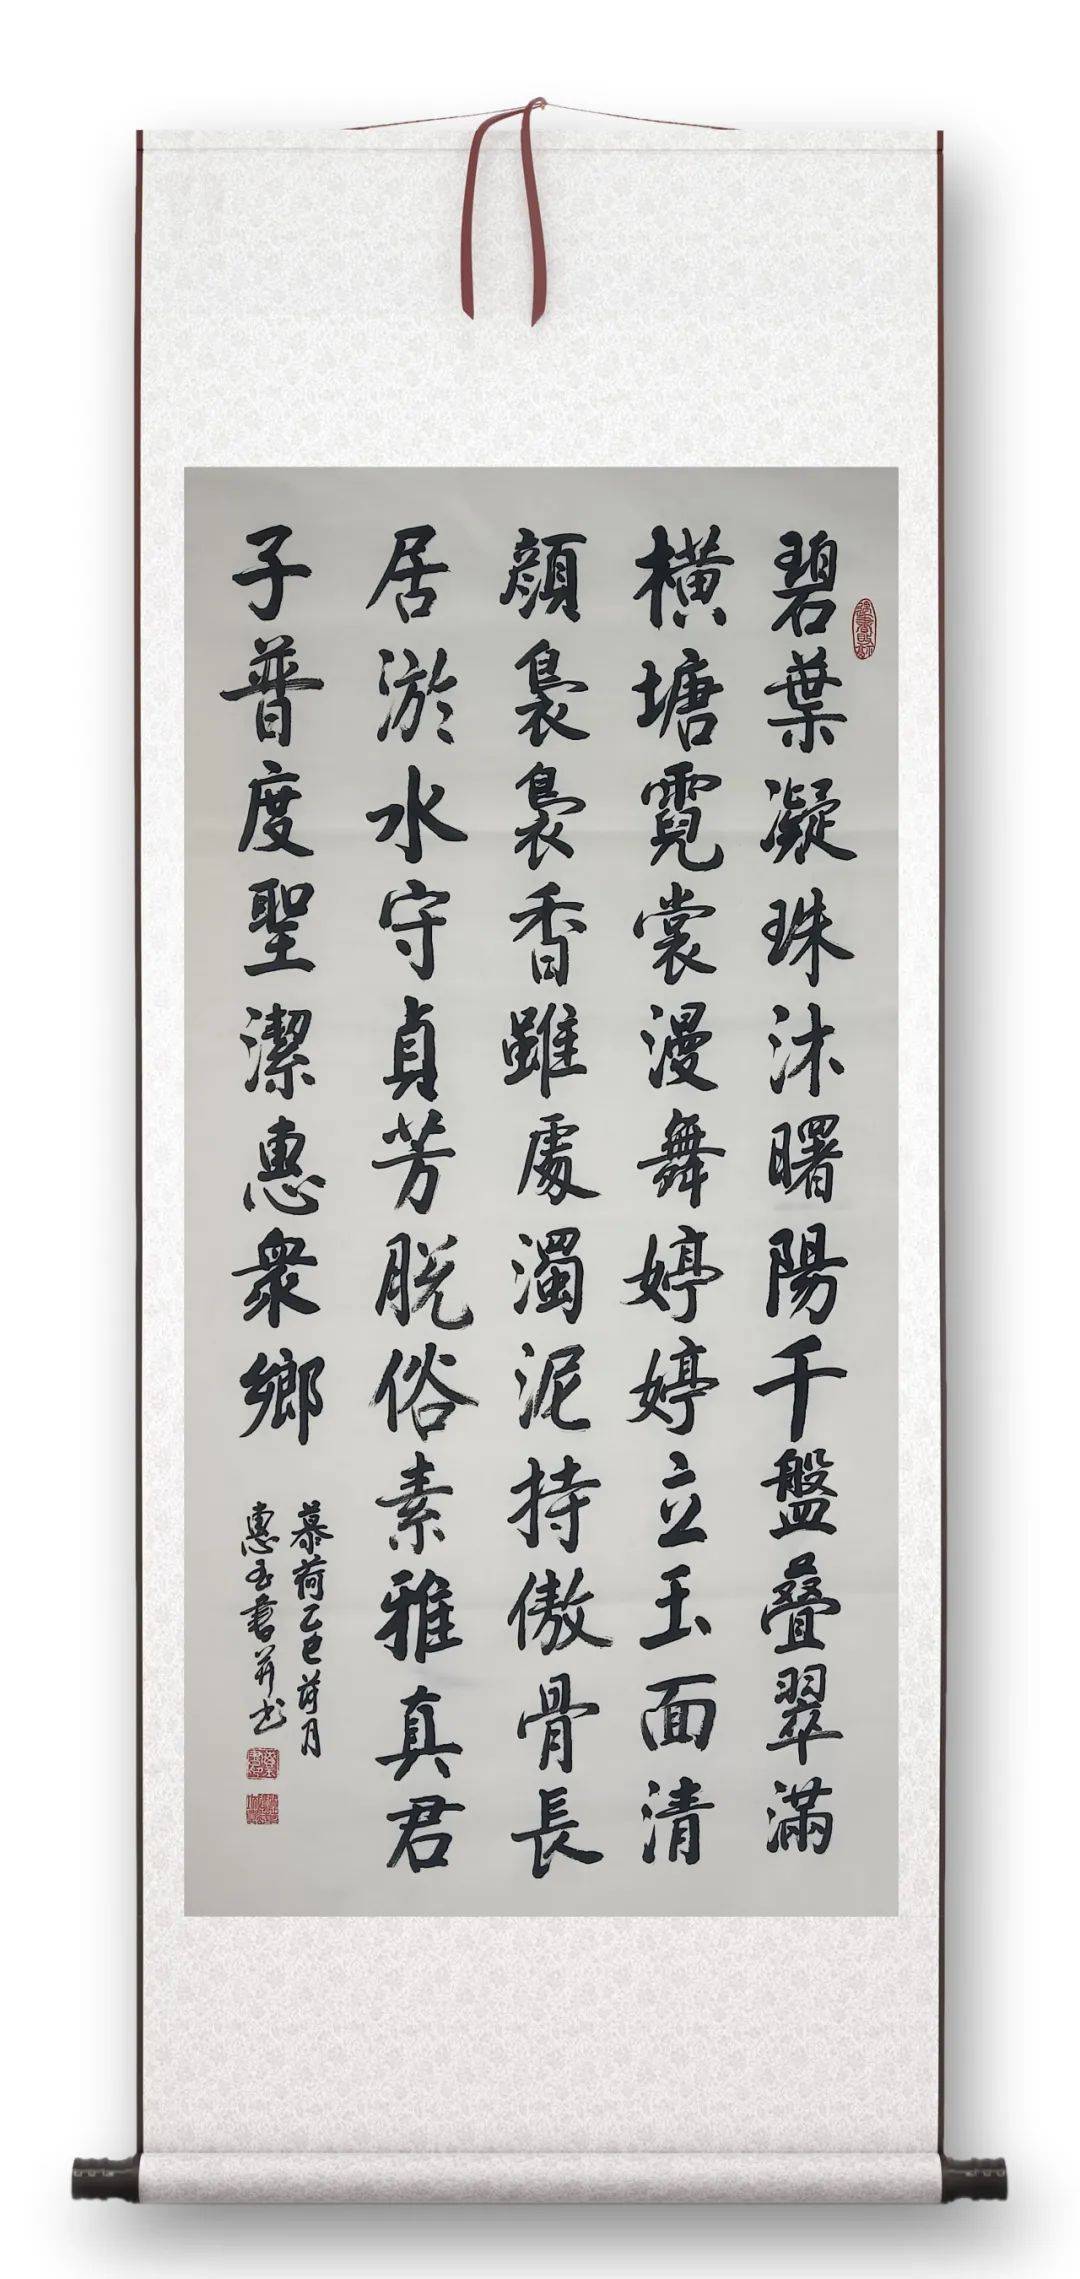 碧葉凝珠沐曙陽千盤疊翠滿
橫塘霓裳漫舞婷婷立玉面清
顏裊裊香雖處濁泥持傲骨長
居淤水守貞芳脫俗素雅真君
子普度聖潔惠衆鄉
慕荷乙巳荷月
惠玉書并